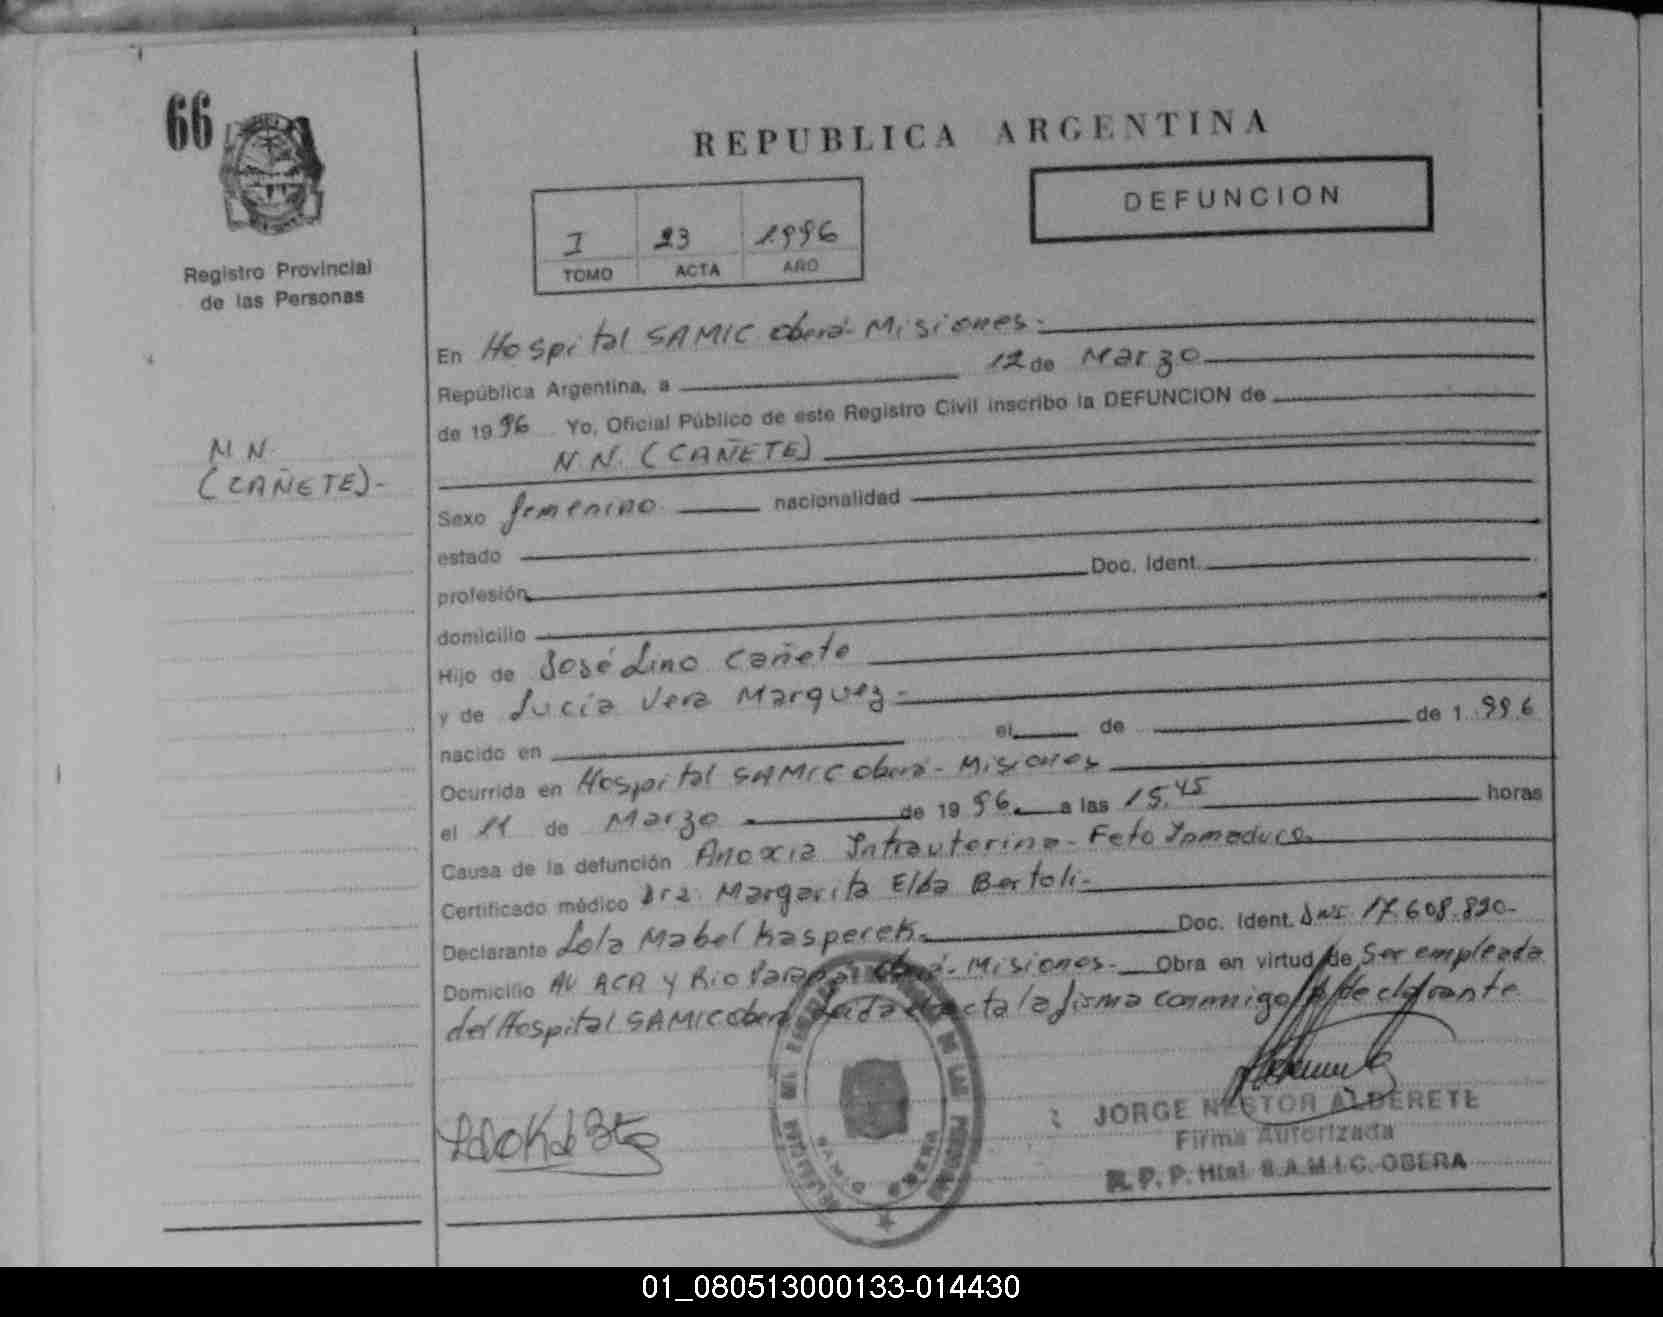 66
REPUBLICA ARGENTINA
DEFUNCION
I 23 1996
TOMO ACTA AÑO
Registro Provincial
de las Personas
En Hospital SAMIC Oberá - Misiones.
República Argentina, a 12 de Marzo
de 1996 Yo, Oficial Público de este Registro Civil inscribo la DEFUNCION de
N.N. (CAÑETE)
N N.
(CAÑETE)-
Sexo femenino nacionalidad
estado
profesión Doc. Ident.
domicilio
Hijo de José Lino Cañete
y de Lucía Vera Marquez-
nacido en el de de 1.996
Ocurrida en Hospital SAMIC Oberá - Misiones
el 11 de Marzo de 1996 a las 15,45 horas
Causa de la defunción Anoxia Intrauterina - Feto Inmaduro.
Certificado médico Dra. Margarita Elda Bertoli-
Declarante Lola Mabel Kasperek. Doc. Ident. DNI. 17.608.820-
Domicilio AV ACA y Rio Paraná Oberá - Misiones- Obra en virtud de Ser empleada
del Hospital SAMIC Oberá Leida el acta la firma conmigo el declarante
JORGE NESTOR ALDERETE
Firma Autorizada
R. P. P. Htal. S.A.M.I.C. OBERA
01_080513000133-014430